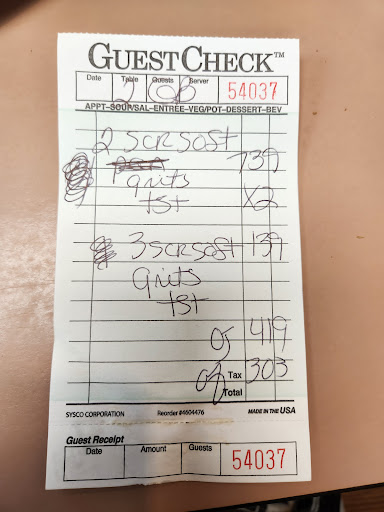 GUESTCHECK™
Date Table Guests Server
2 54037
APPT-SOUP/SAL-ENTRÉE-VEG/POT-DESSERT-BEV
2 SCR SOST
739
grits X2
tst
3 SCR SOST 139
grits
tst
OJ 419
Tax 303
Total
SYSCO CORPORATION Reorder #4604476 MADE IN THE USA
Guest Receipt
Date Amount Guests
54037